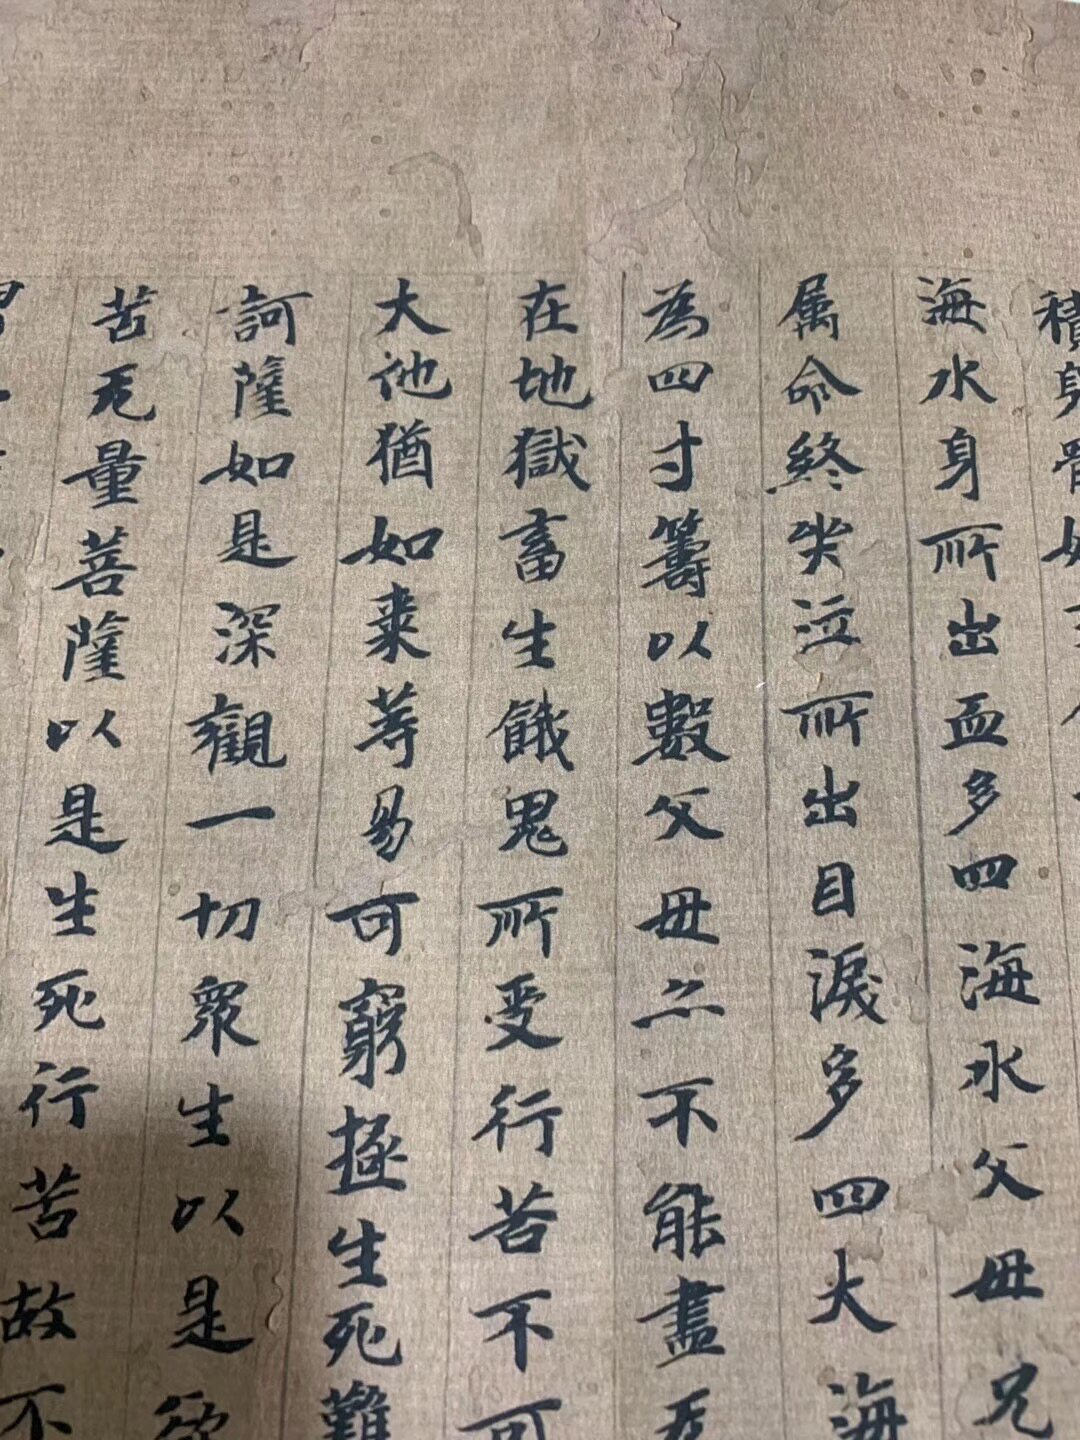 積身骨如
海水身所出血多四海水父母兄
属命終哭泣所出目淚多四大海
為四寸籌以數父母亦不能盡无
在地獄畜生餓鬼所受行苦不可
大地猶如棗等易可窮極生死難
訶薩如是深觀一切衆生以是欲
苦无量菩薩以是生死行苦故不